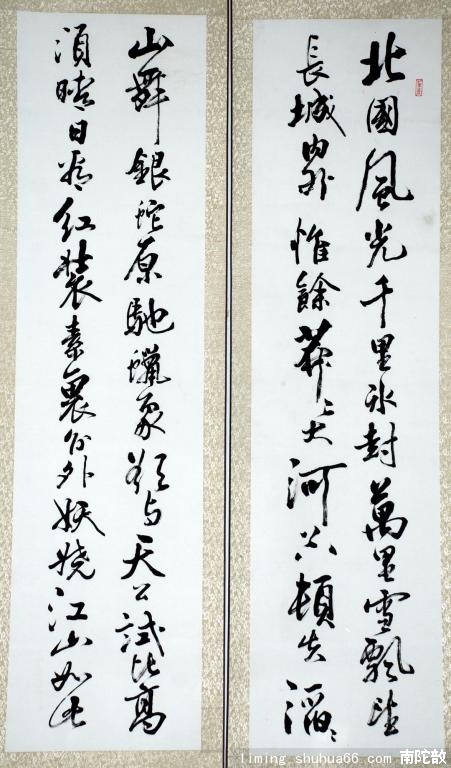 北國風光千里冰封萬里雪飄望
長城內外惟餘莽〻大河上下頓失滔〻
山舞銀蛇原馳蠟象欲与天公試比高
須晴日看紅裝素裹分外妖嬈江山如此
liming.shuhua66.com